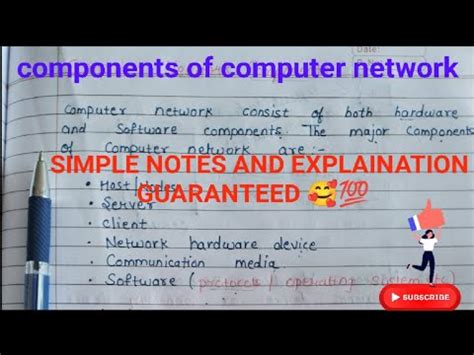 Date:
components of computer network
Computer network consist of both hardware
and Software components. The major Components
of Computer network are :-
SIMPLE NOTES AND EXPLAINATION
GUARANTEED 🥰💯
• Host/Nodes
• Server
• Client
• Network hardware device
• Communication media.
• Software (protocols / operating system etc)
SUBSCRIBE